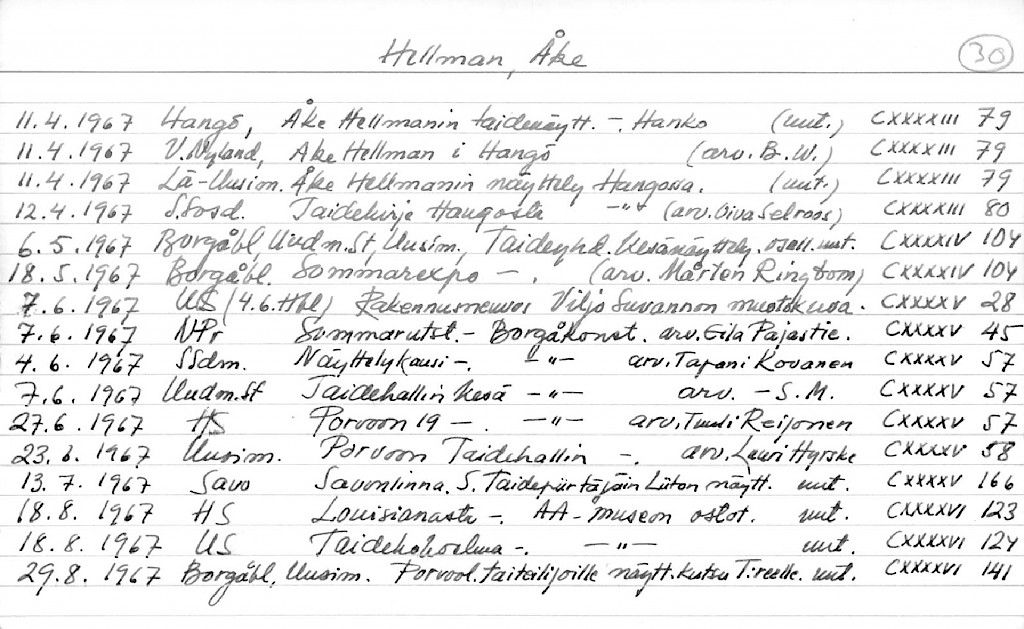 Hellman, Åke 30
11.4.1967 Hangö, Åke Hellmanin taidenäytt. -, Hanko (uut.) CXXXXIII 79
11.4.1967 V.Nyland, Åke Hellman i Hangö (arv. B.W.) CXXXXIII 79
11.4.1967 Lä-Uusim. Åke Hellmanin näyttely Hangossa. (uut.) CXXXXIII 79
12.4.1967 S.Sosd. Taidekirje Hangosta -"- (arv. Oiva Selroos) CXXXXIII 80
6.5.1967 Borgåbl, Uudm.St, Uusim., Taideyhd. kesänäyttely. osall. uut. CXXXXIV 104
18.5.1967 Borgåbl. Sommarexpo -. (arv. Mårten Ringbom) CXXXXIV 104
7.6.1967 US (4.6.Hbl) Rakennusneuvos Viljo Suvannon muotokuva. CXXXXV 28
7.6.1967 NPr Sommarutst. - Borgåkonst. arv. Eila Pajastie. CXXXXV 45
4.6.1967 SSdm. Näyttelykausi -. -"- arv. Tapani Kovanen CXXXXV 57
7.6.1967 Uudm.St Taidehallin kesä -"- arv. - S.M. CXXXXV 57
27.6.1967 HS Porvoon 19 -. -"- arv. Tuuli Reijonen CXXXXV 57
23.6.1967 Uusim. Porvoon Taidehallin -. arv. Lauri Hyrske CXXXXV 58
13.7.1967 Savo Savonlinna. S. Taidepiirtäjäin Liiton näytt. uut. CXXXXV 166
18.8.1967 HS Louisianasta -. AA-museon ostot. uut. CXXXXVI 123
18.8.1967 US Taidekokoelma -. -"- uut. CXXXXVI 124
29.8.1967 Borgåbl, Uusim. Porvool. taiteilijoille näytt. kutsu T:reelle. uut. CXXXXVI 141